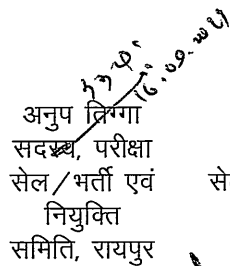 अनुप तिग्गा
सदस्य, परीक्षा
सेल/भर्ती एवं से
नियुक्ति
समिति, रायपुर